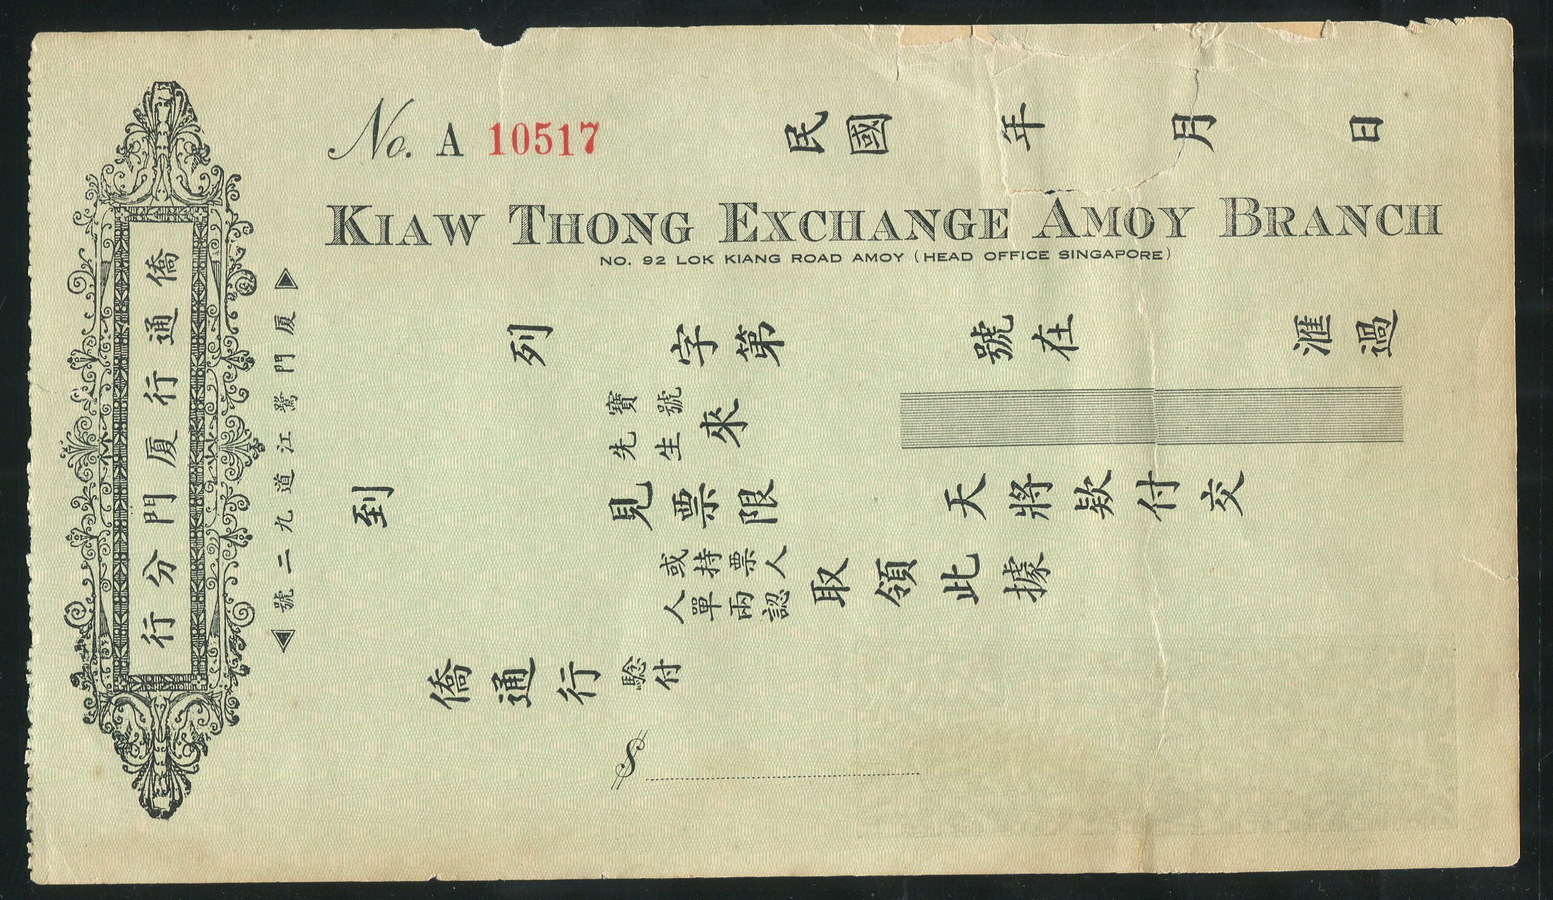 No. A 10517
民國 年 月 日
KIAW THONG EXCHANGE AMOY BRANCH
NO. 92 LOK KIANG ROAD AMOY (HEAD OFFICE SINGAPORE)
僑通行厦門分行
厦門鷺江道九二號
列 字第 號在 滙過
寶號
先生
來
到 見票限 天將欵付交
或持票人
人單兩認
取領此據
僑通行
驗付
$